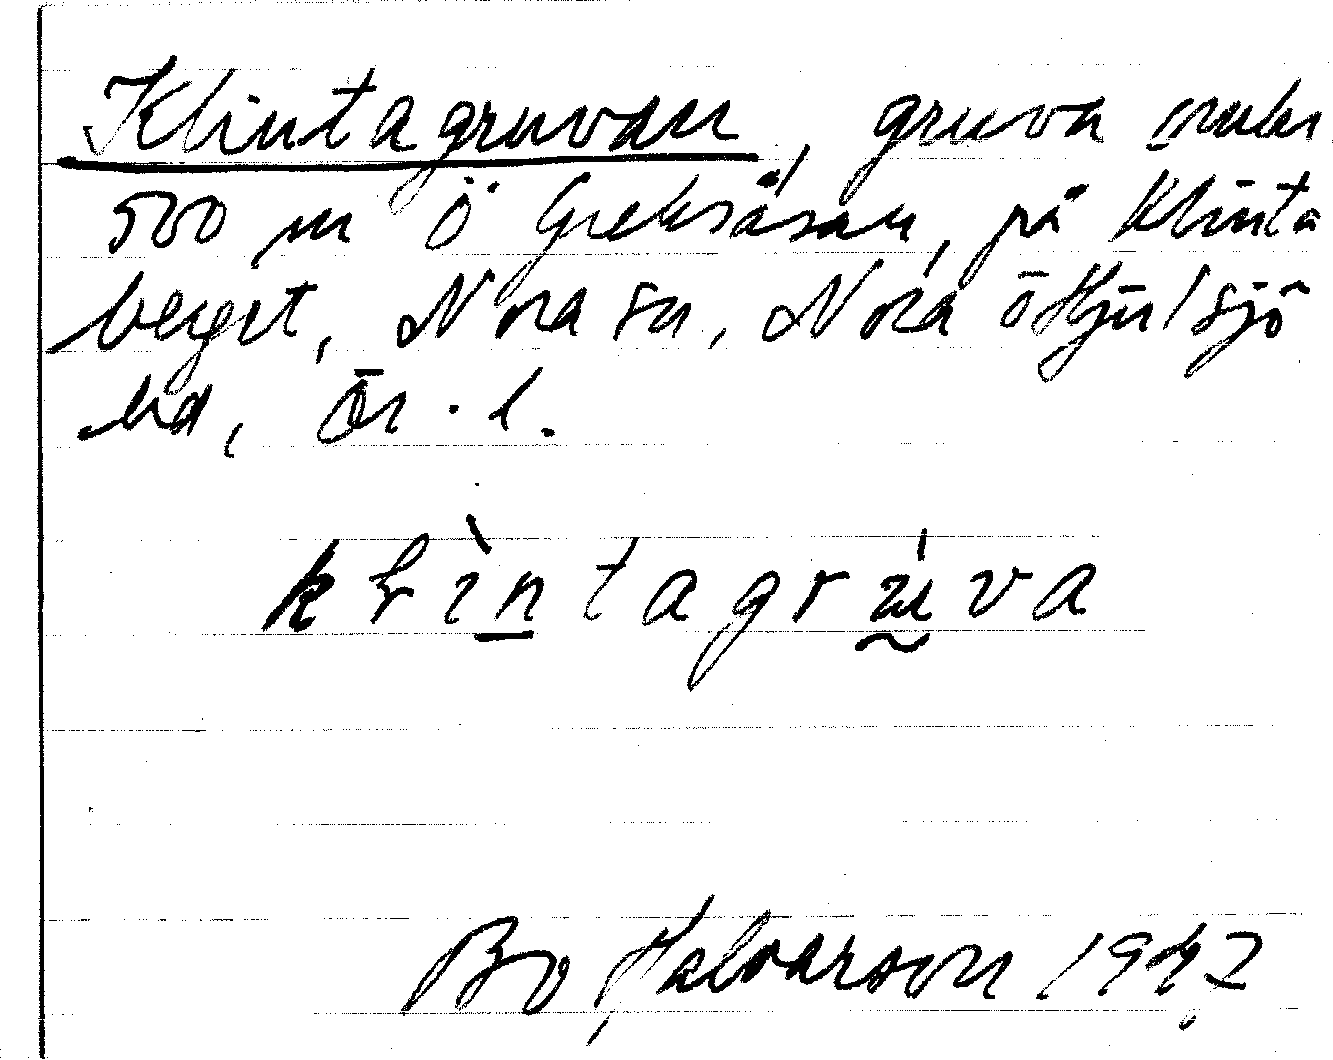 Klintagruvan, gruva omkr
500 m Ö Greksåsan, på Klinta
berget, Nora sn, Nora o Hjulsjö
hd, Ör. l.
klintagruva
Bo Halvarson 1942